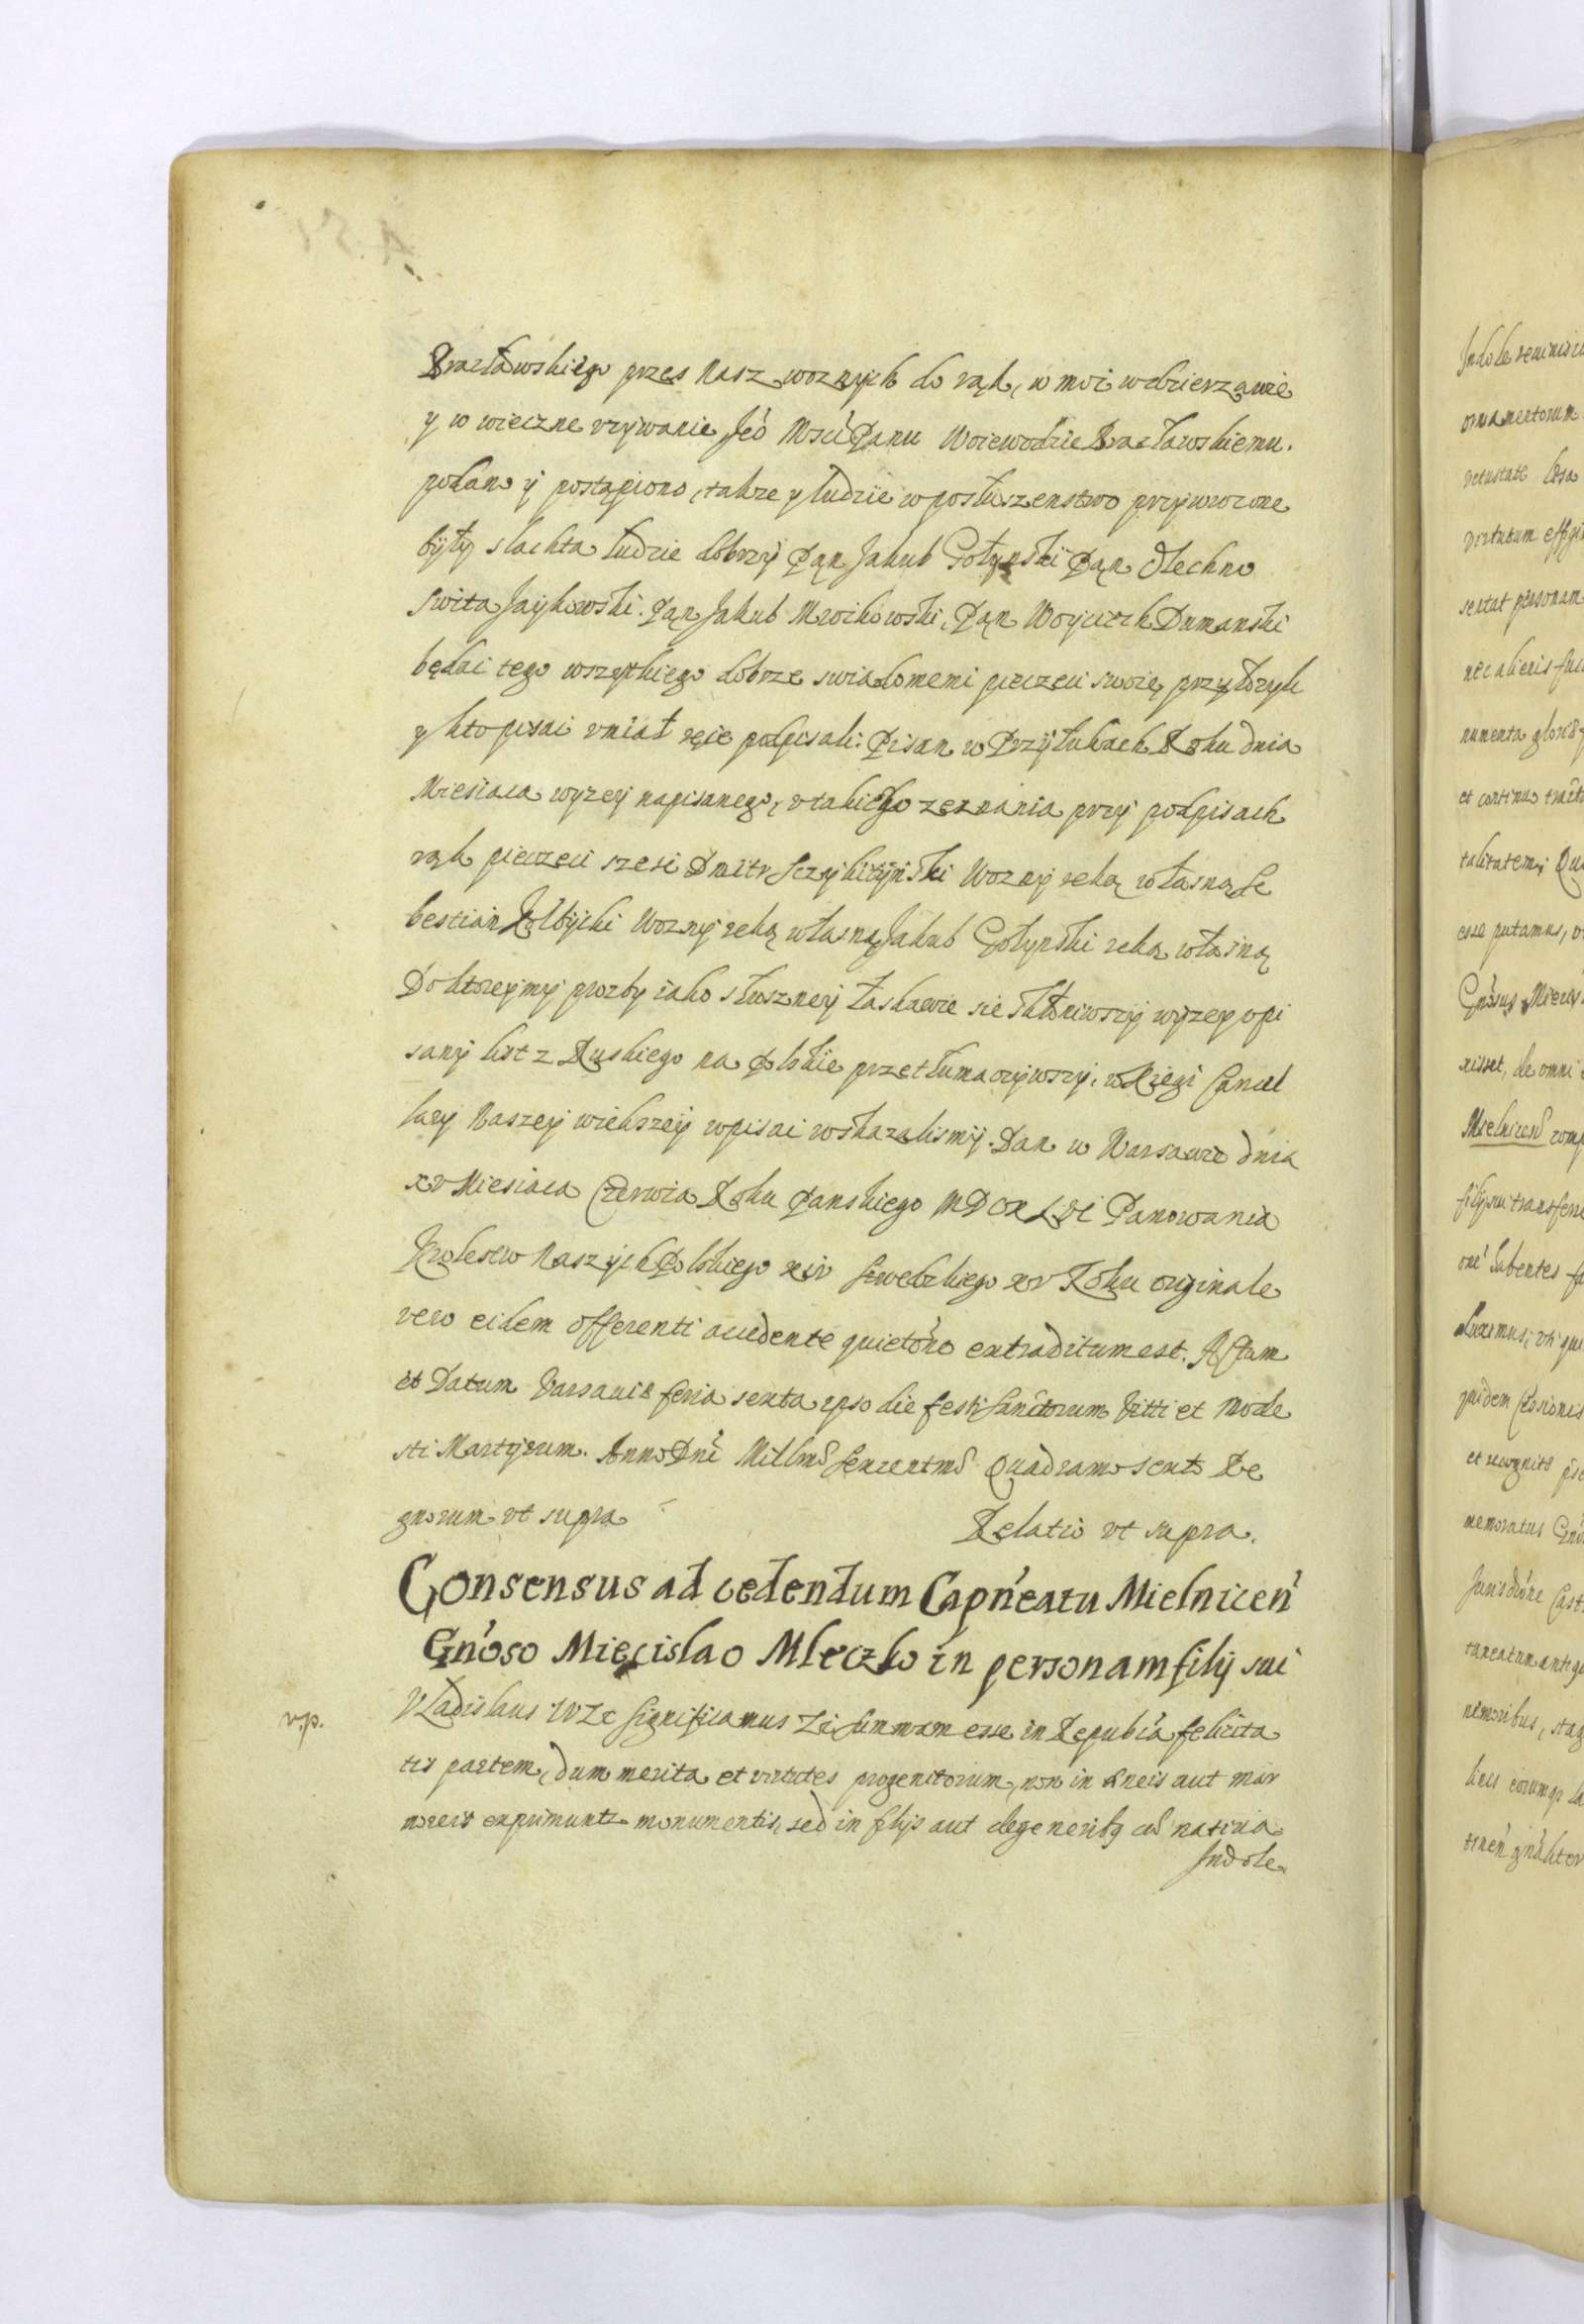 Bracławskiego przes nasz woznych do rąk, w moi w dzierzawie
y w wieczne vzywanie Jeo Msci Panu Woiewodzie Bracławskiemu.
podano y postąpiono, takze y ludzie w posłuszenstwo przywrocone
były slachta ludzie dobrzy Pan Jakub Gołynski Pan Olechno
Swita Jaykowski. Pan Jakub Mrockowski, Pan Woyciech Dumanski
będąc tego wszytkiego dobrze swiadomemi pieczęci swoię przyłozyli
y kto pisac vmiał ręcie podpisali: Pisan w Przyłukach Roku dnia
Miesiaca wyzey napisanego, v takiego zeznania przy podpisach
rąk pieczęci szesc Dmitr Wozny reką własną Se
bestian Wozny reką własną Jakub Gołynski reką własną
Do ktorey my prozby iako słuszney łaskawie sie skłoniwszy wyzey opi
sany list z Ruskiego na Polskie przetłumaczywszy, w Kięgi Cancel
lary Naszey wiekszey wpisac wskazalismy. Dan w Warsawie dnia
xv Miesiaca Czerwca Roku Panskiego MDCXLVI Panowania
Krolestw Naszych Polskiego xiv Swedzkiego xv Roku originale
vero eidem offerenti accedente quietone extraditum est. Actum
et Datum Varsaviæ feria sexta ipso die festi Sanctorum Vitti et Mode
sti Martyrum. Anno Dni Millmo Sexcentmo Quadramo sexto Re
gnorum vt supra
Relatio vt supra.
Consensus ad cedendum Capneatu Mielnicen
Gnoso Miecislao Mleczko in personam filij sui
v.p.
Vladislaus IV Zc Significamus Zc Summam esse in Repubca felicita
tis partem, dum merita et virtutes progenitorum, non in æneis aut mar
moreis exprimuntr monumentis, sed in filijs aut degeneribq cu nativa
Indole
Indole
ornamentorum
vetustate
virtutum effigi
sentat personam
nec alienis
numenta
et continuo
talitatem, Qu
esse putamus,
Gnosus Miecis
xisset, de omni
Mielnicen
filij sui transfere
oni Subentes
Duximus, vti
quidem Cessionis
et recognito
memoratus Gno
Jurisdione Cast
taneatum antiq
nemoribus, stag